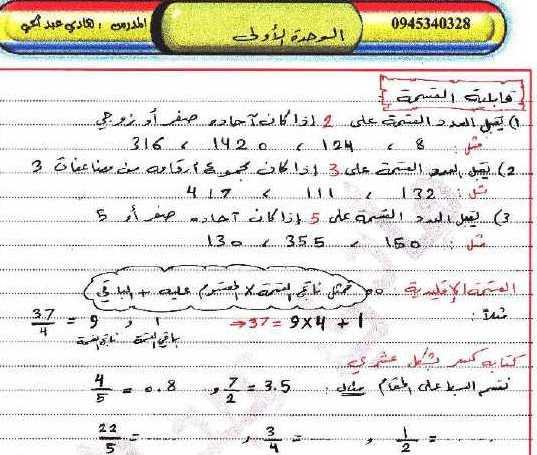 0945340328 الوحدة الأولى المدرس : هادي عبد الحي
قابلية القسمة
1) يقبل العدد القسمة على 2 إذا كان آحاده صفر أو زوجي
مثل : 8 ، 124 ، 1420 ، 316
2) يقبل العدد القسمة على 3 إذا كان مجموع أرقامه من مضاعفات 3
مثل : 132 ، 111 ، 417
3) يقبل العدد القسمة على 5 إذا كان آحاده صفر أو 5
مثل : 150 ، 355 ، 130
القسمة الإقليدية : تمثل ناتج القسمة × المقسوم عليه + الباقي
مثلاً : 37 = 9×4 + 1 ⇒ 1 ، 9 = 37/4
باقي القسمة ناتج القسمة
كتابة كسر بشكل عشري
نقسم البسط على المقام مثال : 7/2 = 3.5 ، 4/5 = 0.8
1/2 = ...... ، 3/4 = ...... ، 22/5 =